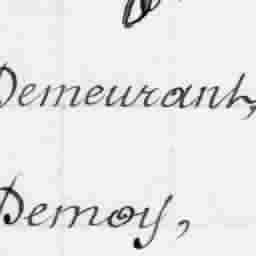 Demeurant,
Demoy,